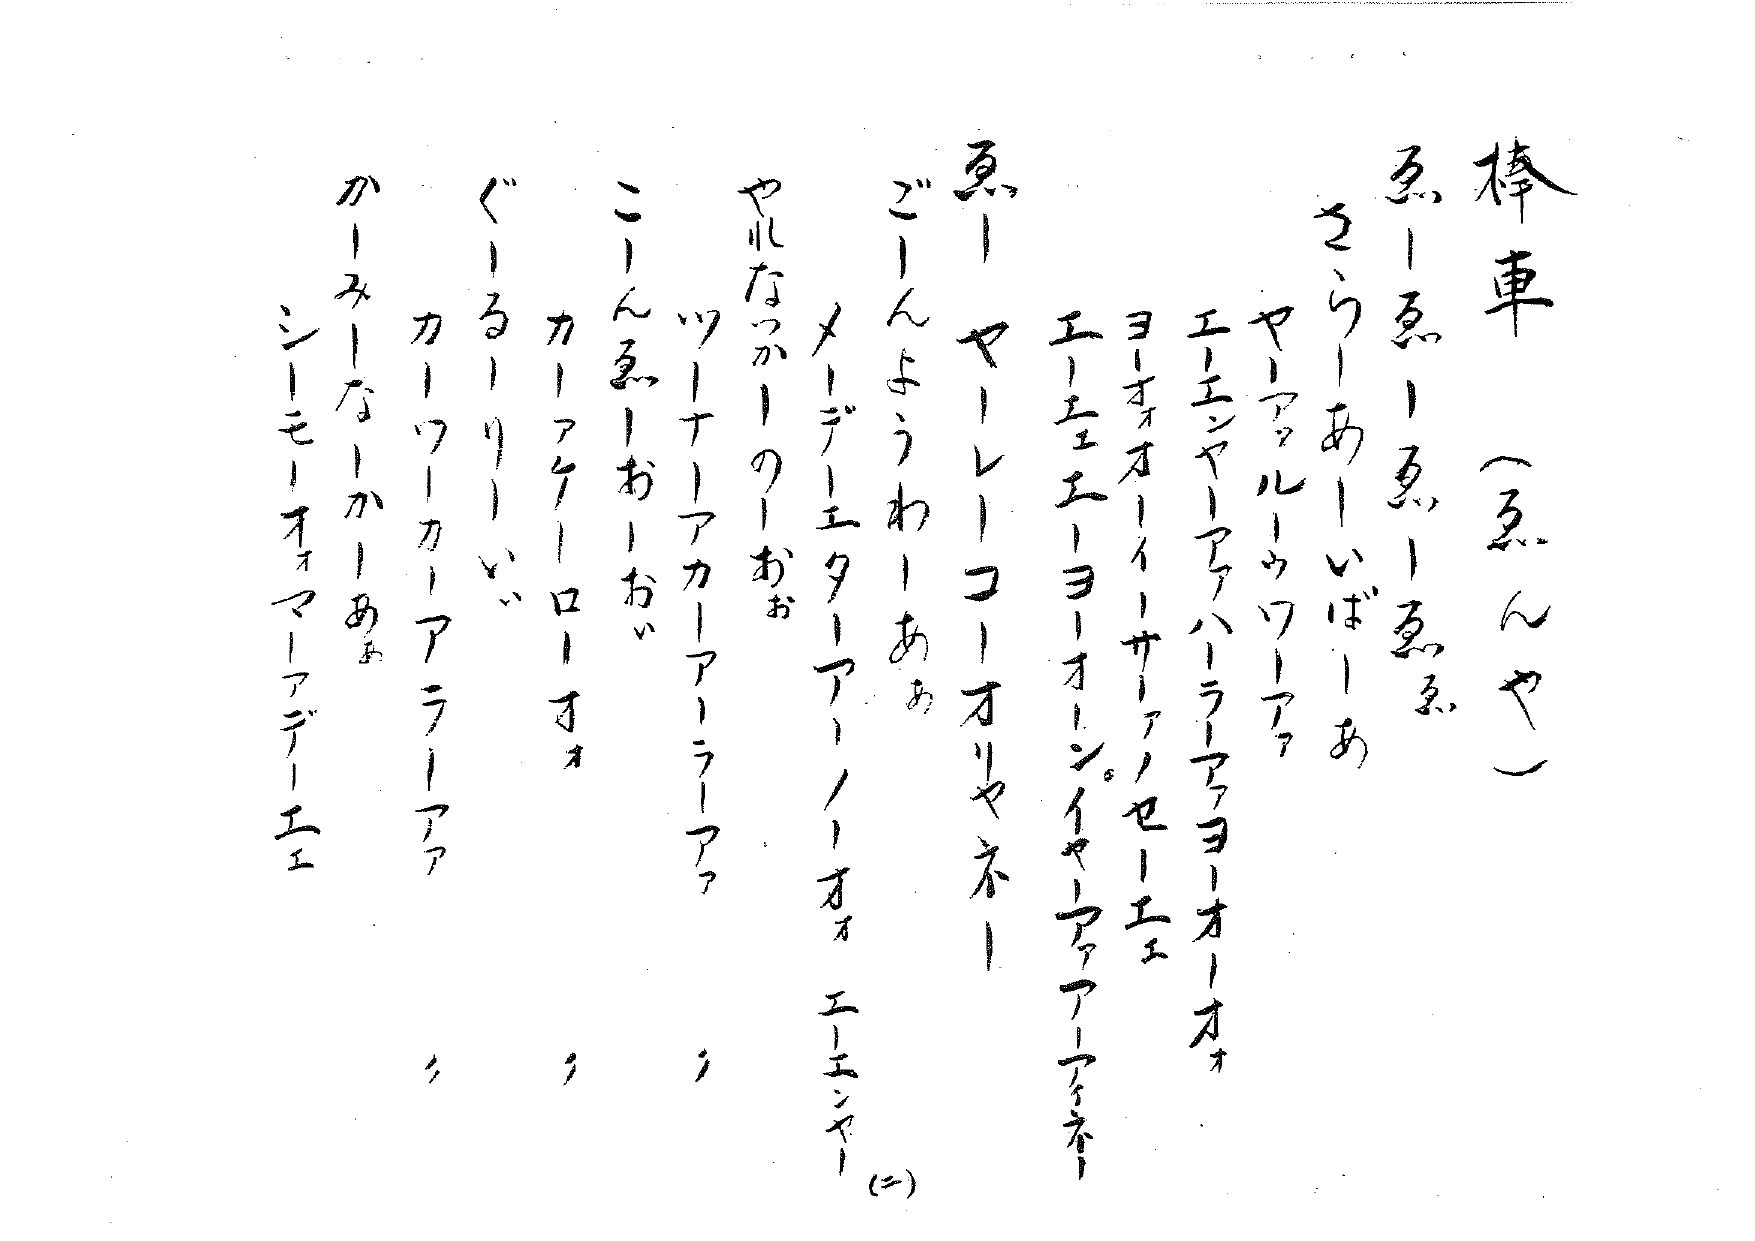 棒車 (ゑんや)
ゑーゑーゑーゑゑ
さらーあーいばーあ
ヤーアァルーゥワーアァ
エーエンヤーアァハーラーアァヨーオーオォ
ヨーオォオーイーサーァノセーエェ
エーエェエーヨーオーン。イヤーアァアーアィネー
ゑー ヤーレーコーオリャネー
ごーんようわーあぁ
メーデーエターアーノーオォ エーエンヤー
(二)
やれなっかーのーおぉ
ツーナーアカーアーラーアァ 〃
こーんゑーおーおぃ
カーァケーローオォ 〃
ぐーるーりーいぃ
カーワーカーアラーアァ 〃
かーみーなーかーあぁ
シーモーオォマーァデーエェ